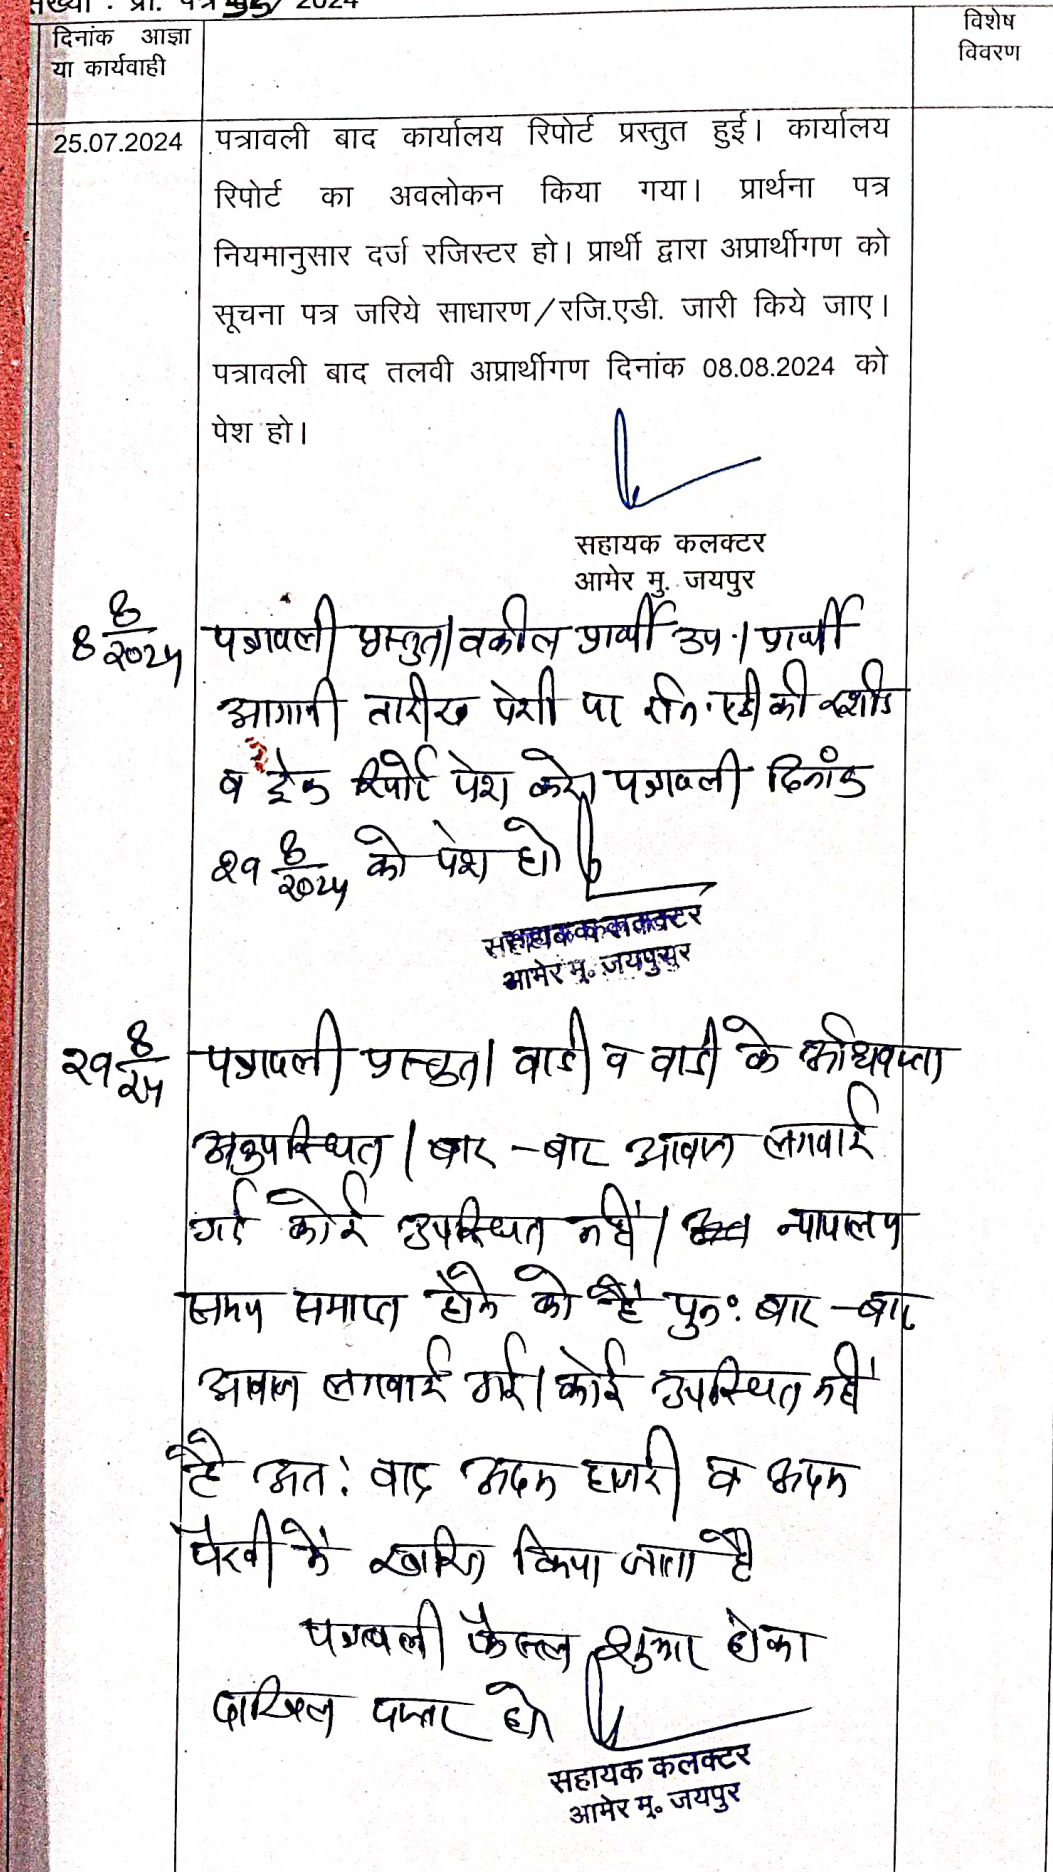 संख्या : प्रा. पत्र 55/ 2024
दिनांक आज्ञा
या कार्यवाही
विशेष
विवरण
25.07.2024
पत्रावली बाद कार्यालय रिपोर्ट प्रस्तुत हुई। कार्यालय
रिपोर्ट का अवलोकन किया गया। प्रार्थना पत्र
नियमानुसार दर्ज रजिस्टर हो। प्रार्थी द्वारा अप्रार्थीगण को
सूचना पत्र जरिये साधारण/रजि.एडी. जारी किये जाए।
पत्रावली बाद तलवी अप्रार्थीगण दिनांक 08.08.2024 को
पेश हो।
सहायक कलक्टर
आमेर मु. जयपुर
8 8/2024 पत्रावली प्रस्तुत। वकील प्रार्थी उप.। प्रार्थी
आगामी तारीख पेशी पर रजि. एडी की रशीद
व ट्रेक रिपोर्ट पेश करे। पत्रावली दिनांक
21 8/2024 को पेश हो।
सहायक कलक्टर
आमेर मु. जयपुर
21 8/24 पत्रावली प्रस्तुत। वादी व वादी के अधिवक्ता
अनुपस्थित। बार-बार आवाज लगवाई
गई कोई उपस्थित नहीं। न्यायालय
समय समाप्त होने को है पुनः बार-बार
आवाज लगवाई गई। कोई उपस्थित नहीं
है अतः वाद अदम हाजरी व अदम
पैरवी में खारिज किया जाता है
पत्रावली फैसल शुमार होकर
दाखिल दफ्तर हो।
सहायक कलक्टर
आमेर मु. जयपुर